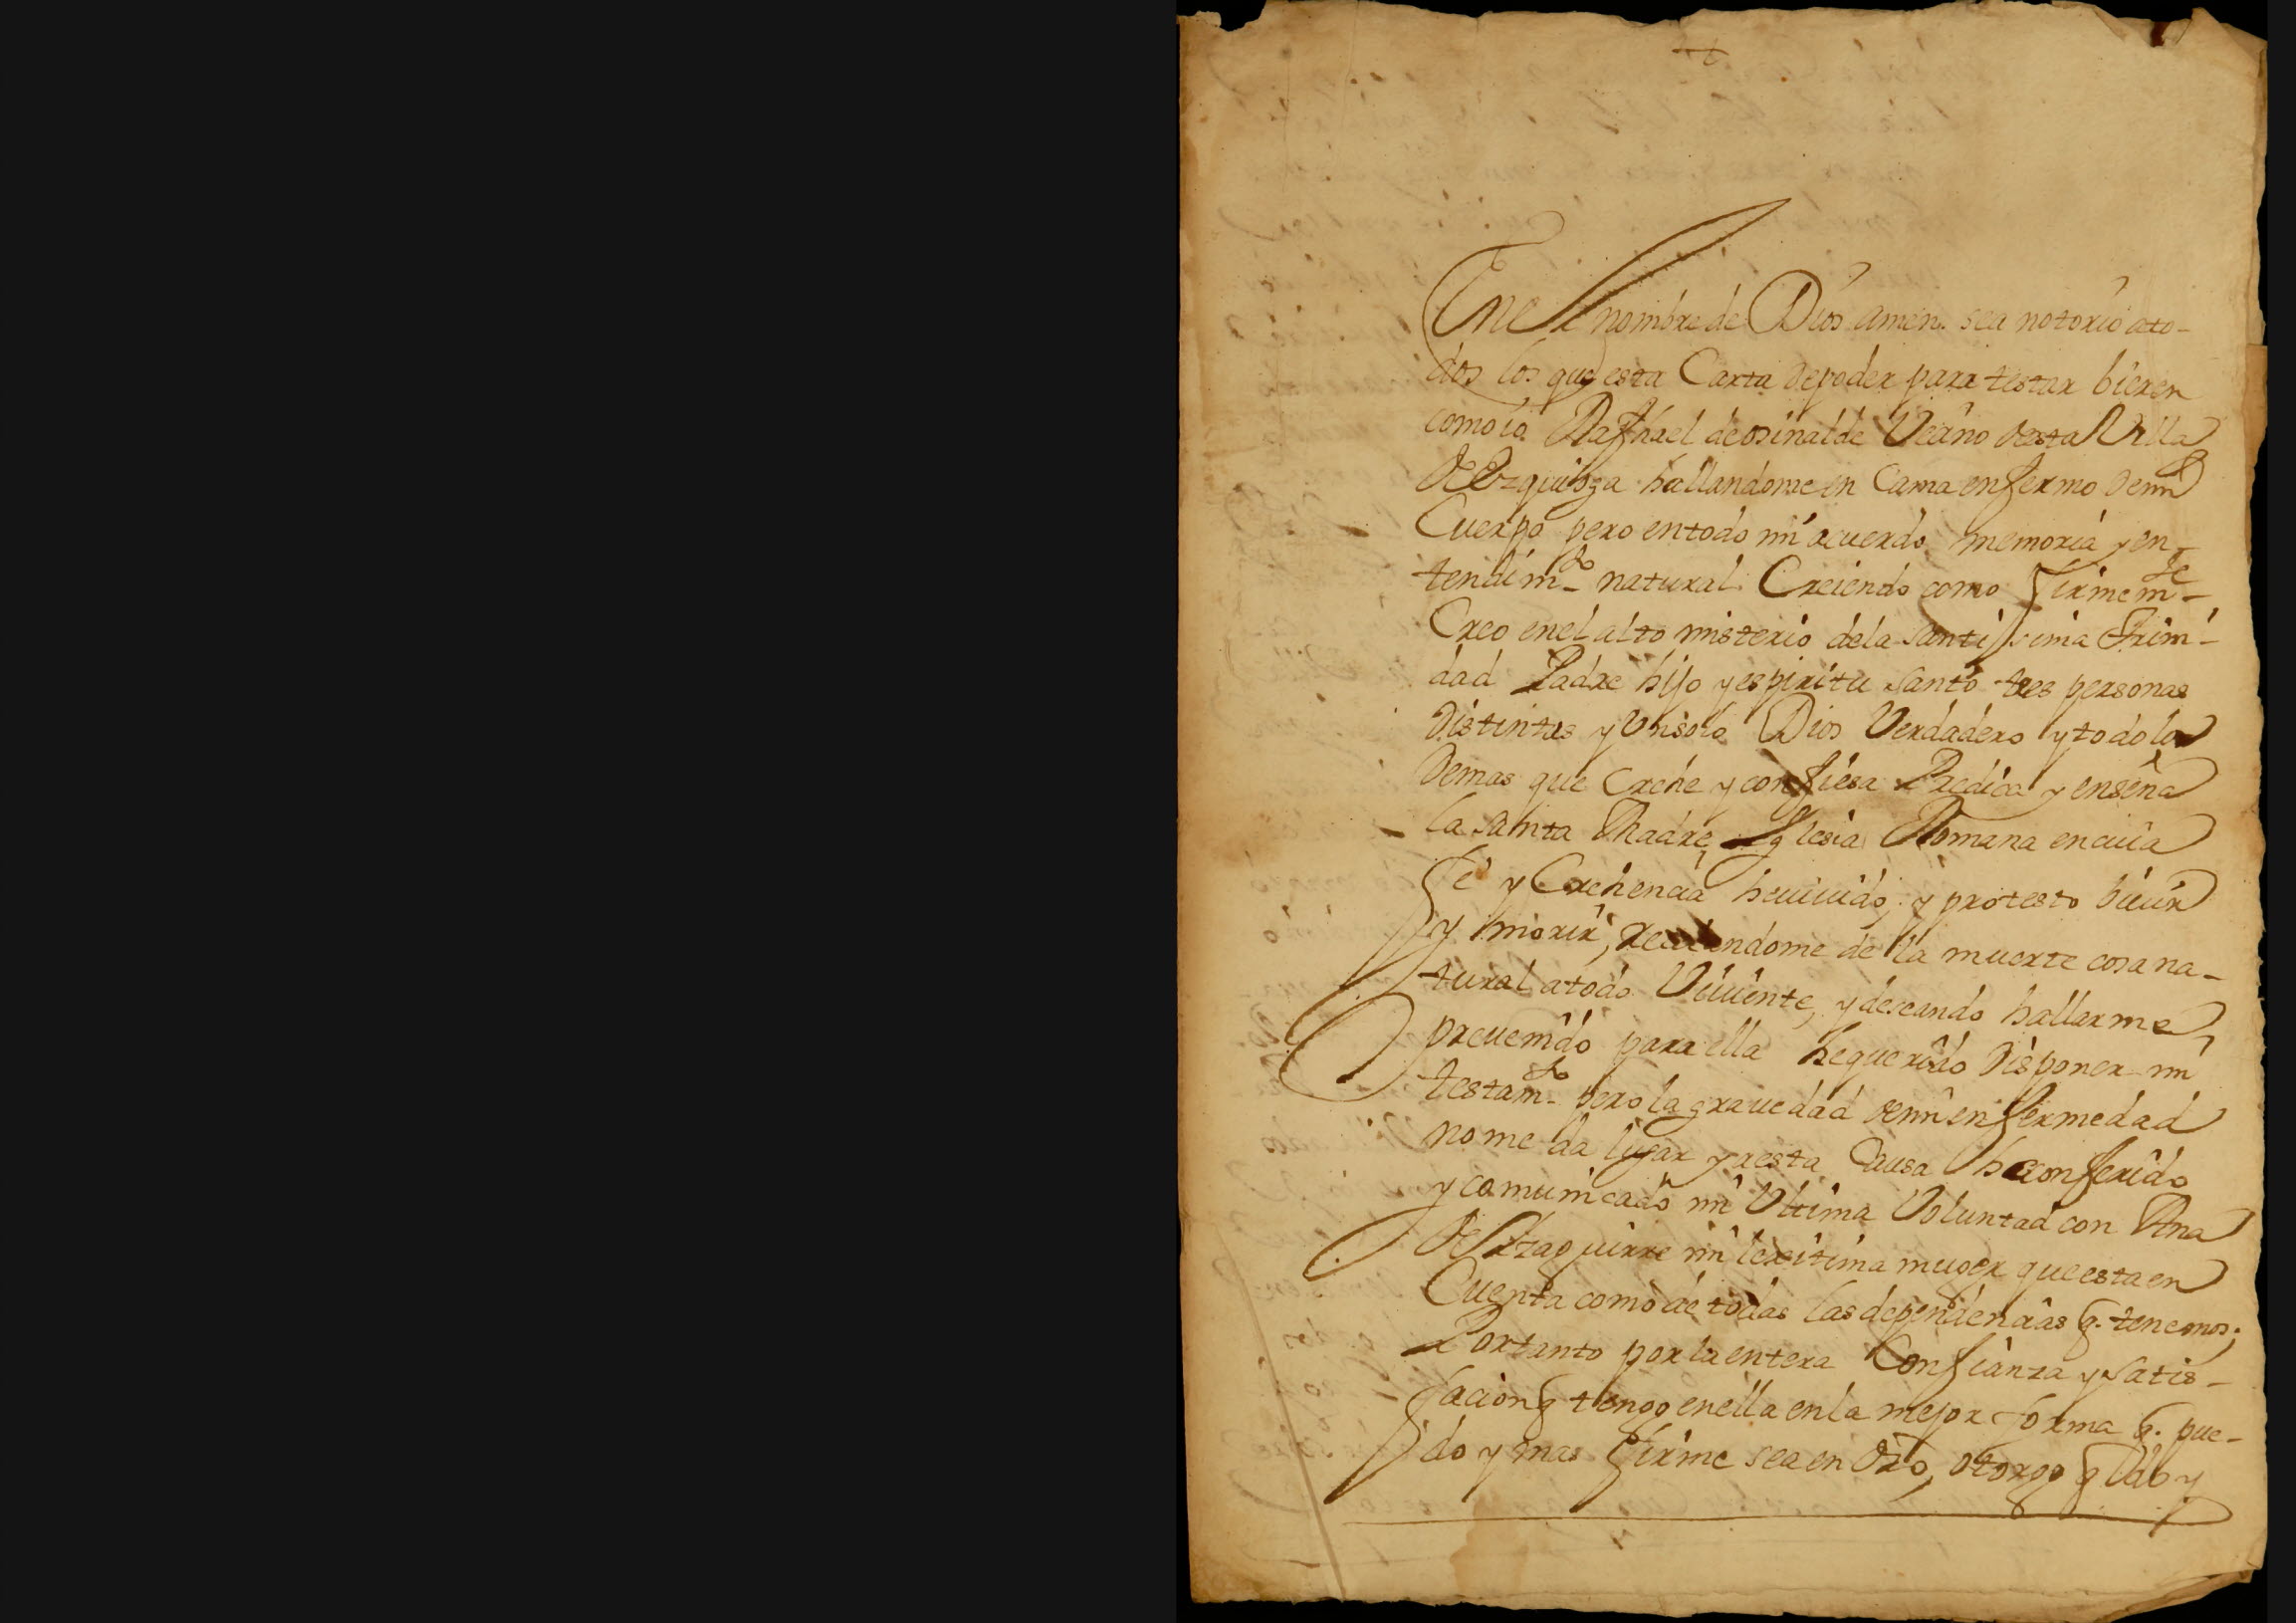 †
Enel nombre de Dios amen. sea notorio ato-
dos los que esta Carta de poder para testar bieren
como io Raphael de osinalde Veçino desta Villa
de Ezquioga hallandome en Cama enfermo de mi
Cuerpo pero entodo mi acuerdo memoria y en-
tendimto natural Creiendo como firmemte
Creo enel alto misterio dela santissima Trini-
dad Padre hijo y espiritu santo tres personas
distintas y Unsolo Dios Verdadero y todo lo
demas que Crehe y confiesa Predica y enseña
la santa Madre Yglesia Romana encuia
fe y Crehencia heuiuido, y protesto biuir
y morir, reçelandome de la muerte cosa na-
tural atodo Viuiente, y deseando hallarme
preuenido para ella hequerido disponer mi
testamto pero la grauedad demi enfermedad
no me da lugar yresta Causa heconferido
y comunicado mi Ultima Voluntad con Ana
de Yzaguirre mi lexitima muger que esta en
Cuenta como de todas las dependençias q. tenemos;
Portanto por la entera Confianza y satis-
facion q tengo enella enla mejor forma q. pue-
do y mas firme sea en dro, otorgo q doy